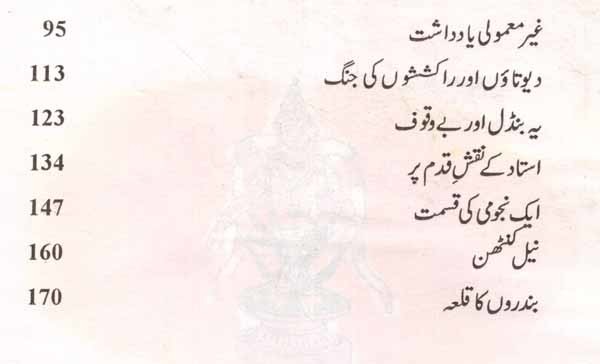 غیر معمولی یادداشت 95
دیوتاؤں اور راکششوں کی جنگ 113
یہ بنڈل اور بے وقوف 123
استاد کے نقشِ قدم پر 134
ایک نجومی کی قسمت 147
نیل کنٹھن 160
بندروں کا قلعہ 170